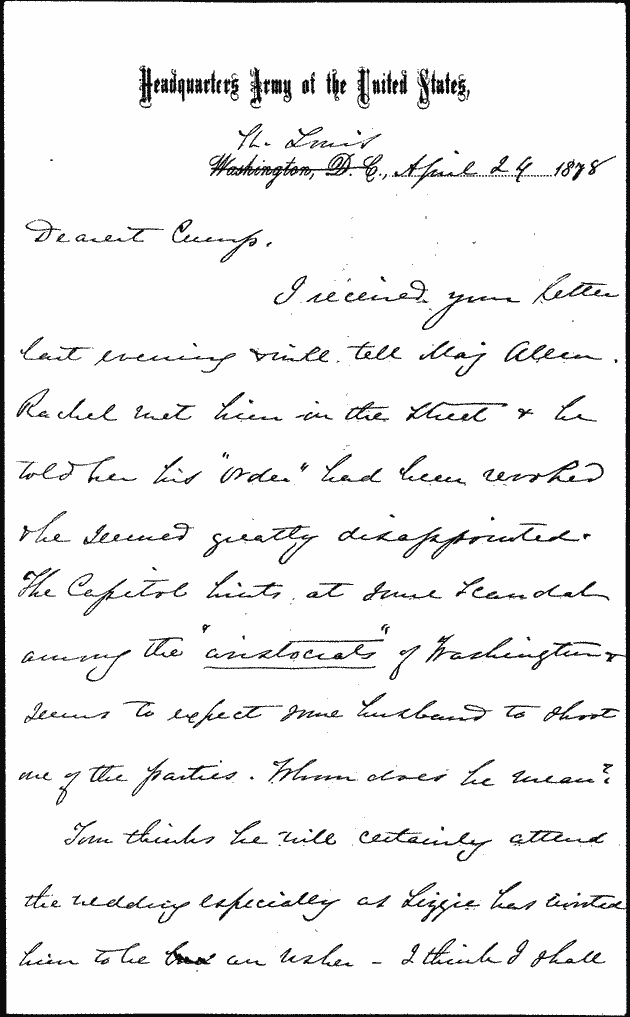 Headquarters Army of the United States,
St. Louis
Washington, D.C., April 24 1878
Dearest Cump,
I received your letter
last evening & will tell Maj Allen.
Rachel met him in the street & he
told her his "order" had been revoked
& he seemed greatly disappointed.
The Capitol hints at some scandal
among the "aristocrats" of Washington &
seems to expect some husband to shoot
one of the parties. Whom does he mean?
Tom thinks he will certainly attend
the wedding especially as Lizzie has invited
him to be an usher – I think I shall